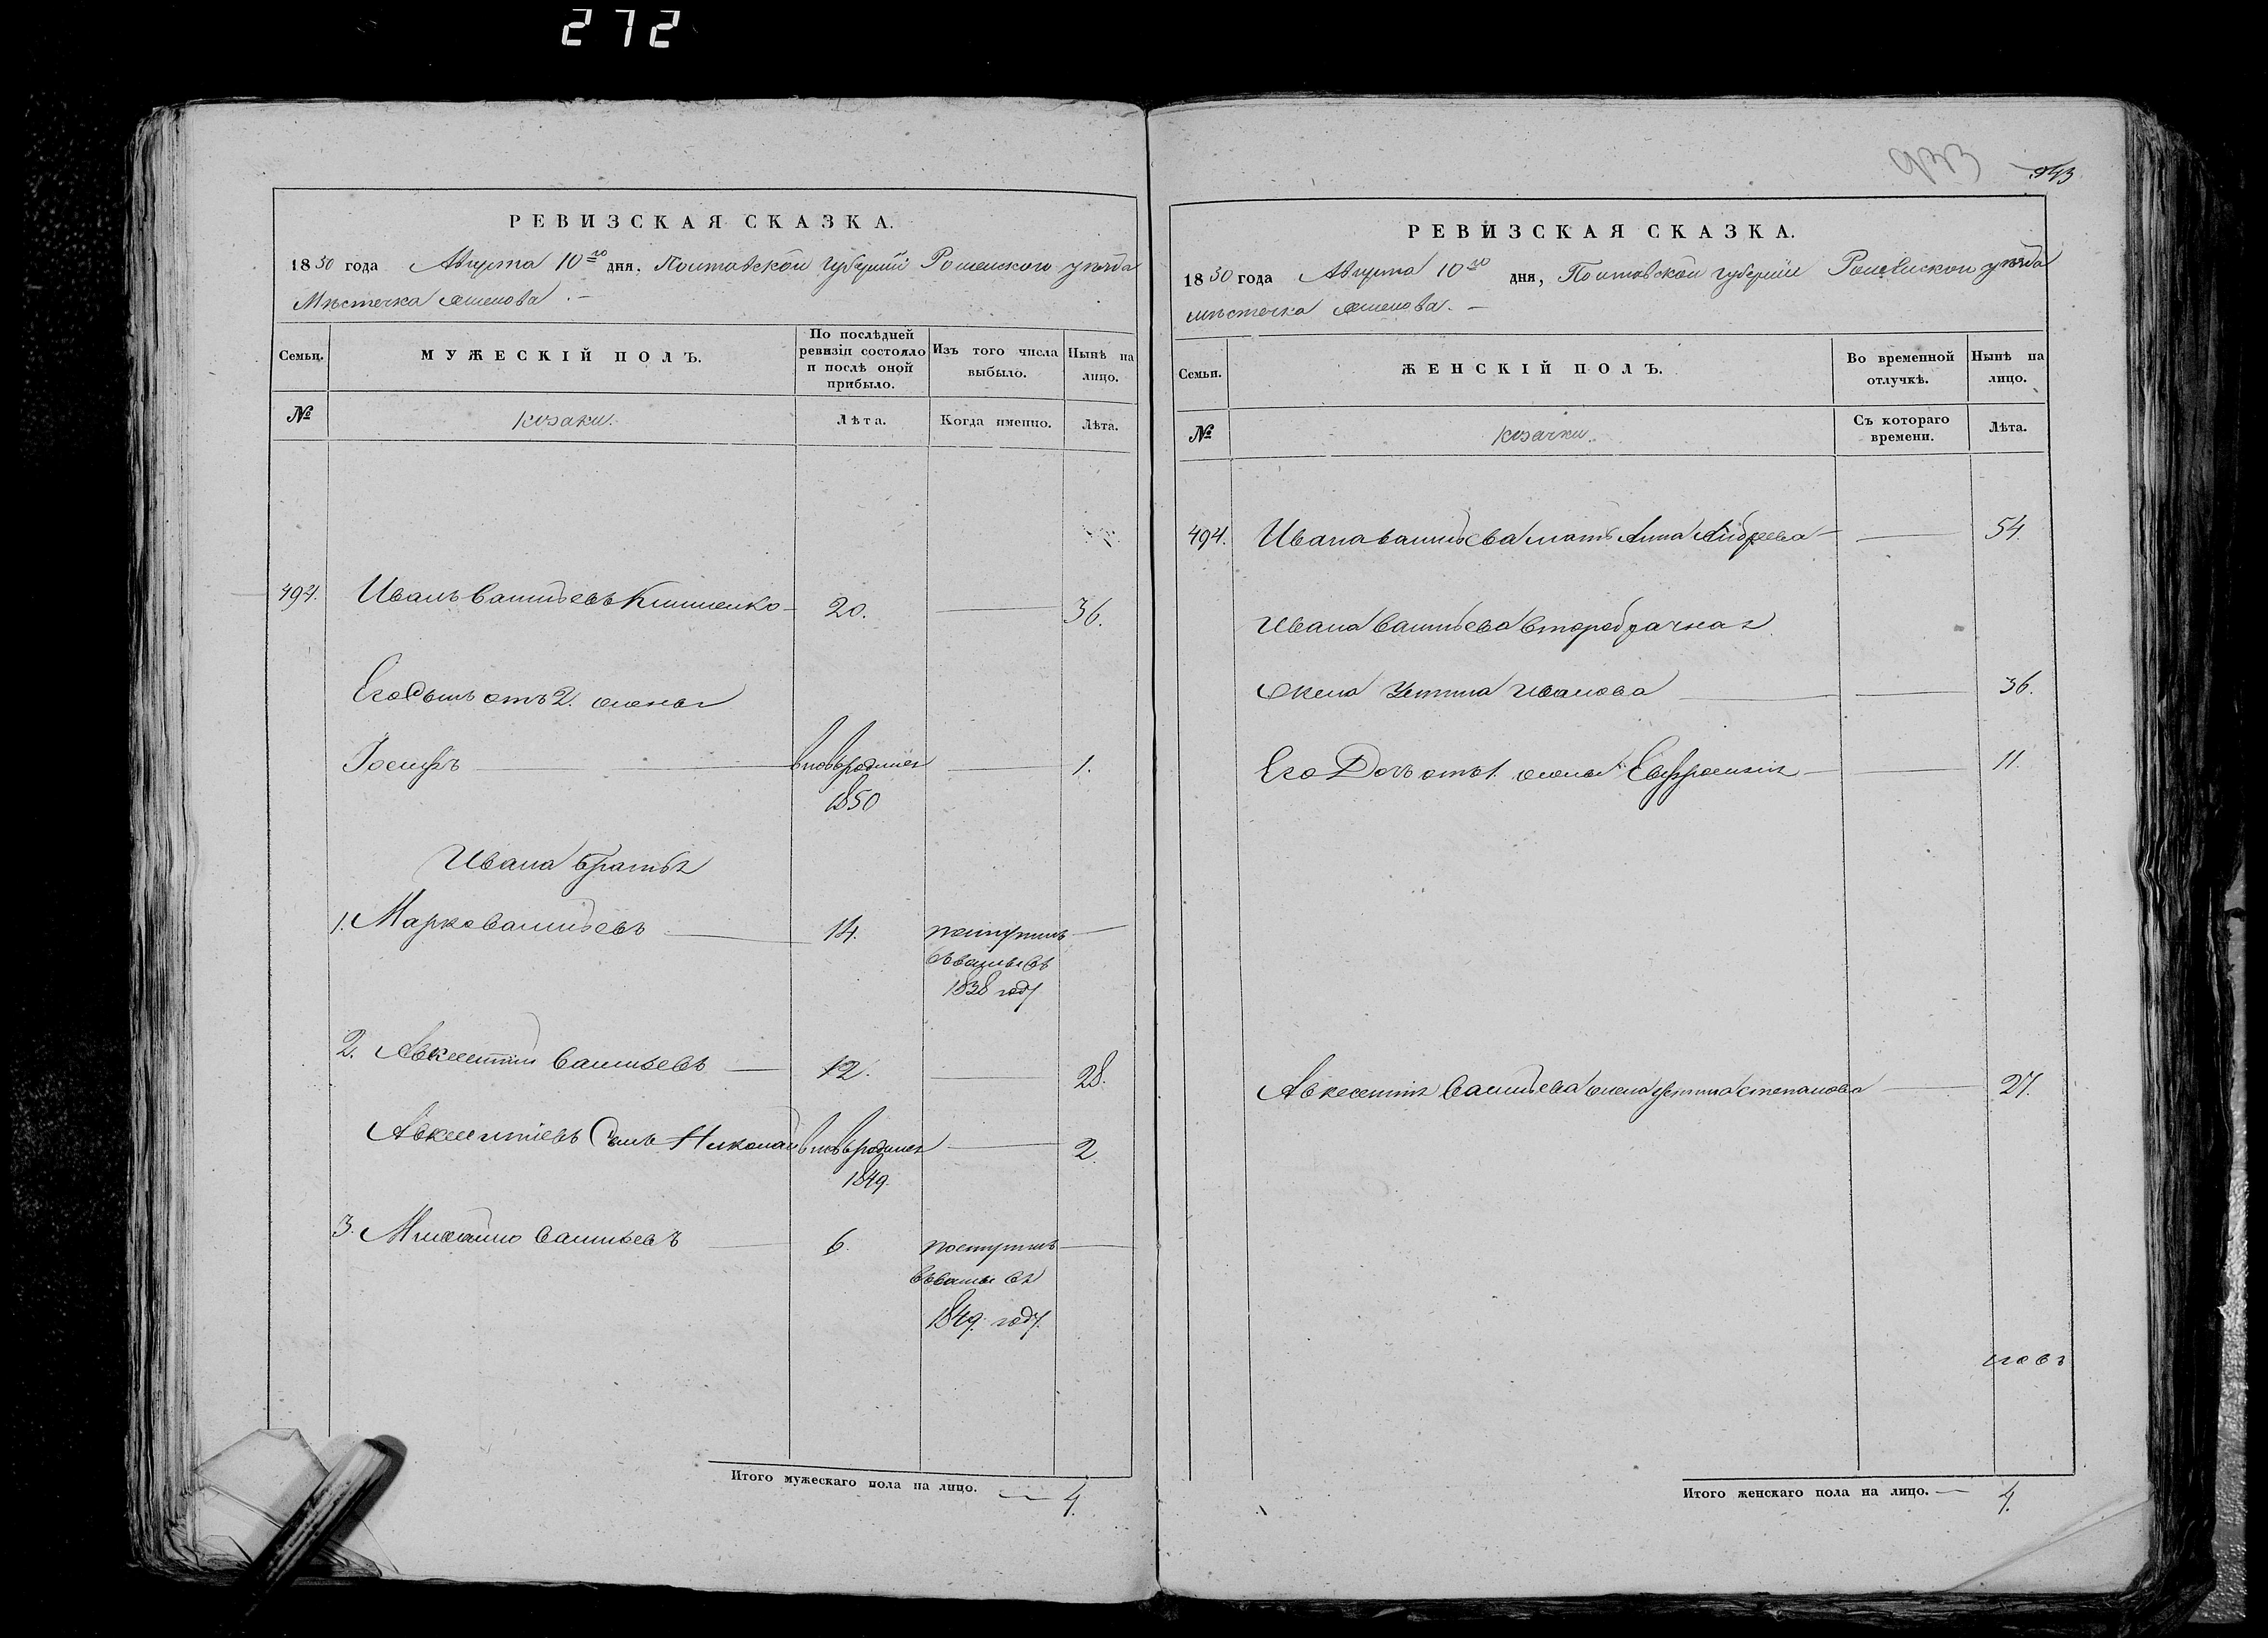 272
933
943
РЕВИЗСКАЯ СКАЗКА.
1850 года Августа 10го дня, Полтавской Губерніи Роменского уѣзда
Мѣстечка Смелова. —
Семьи.
МУЖЕСКІЙ ПОЛЪ.
По послѣдней ревизіи состояло и послѣ оной прибыло.
Изъ того числа выбыло.
Нынѣ на лицо.
№
козаки.
Лѣта.
Когда именно.
Лѣта.
494. Иванъ Васильевъ Клименко — 20. — 36.
Его Сынъ отъ 2. жены
Іосифъ — вновьродился — 1.
1850
Ивана братья
1. Марко Васильевъ — 14. поступилъ —
1838 году
2. Авксентій Васильевъ — 12. — 28.
Авксентіевъ Сынъ Николай вновьродился — 2.
1849.
3. Михайло Васильевъ — 6. поступилъ —
1849. году.
Итого мужескаго пола на лицо. — 4.
РЕВИЗСКАЯ СКАЗКА.
1850 года Августа 10го дня, Полтавской губерніи Роменского уѣзда
мѣстечка Смелова. —
Семьи.
ЖЕНСКІЙ ПОЛЪ.
Во временной отлучкѣ.
Нынѣ на лицо.
№
козачки.
Съ котораго времени.
Лѣта.
494. Ивана Васильева мать Анна Андреева — — 54.
Ивана Васильева второбрачная
жена Устина Иванова — — 36.
Его Дочь отъ 1. жены Евфросинія — — 11.
Авксентія Васильева жена Устина Степанова — 27.
Итого женскаго пола на лицо. — 4.